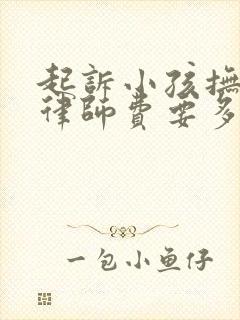 起訴小孩撫
律師費要多
一包小鱼仔